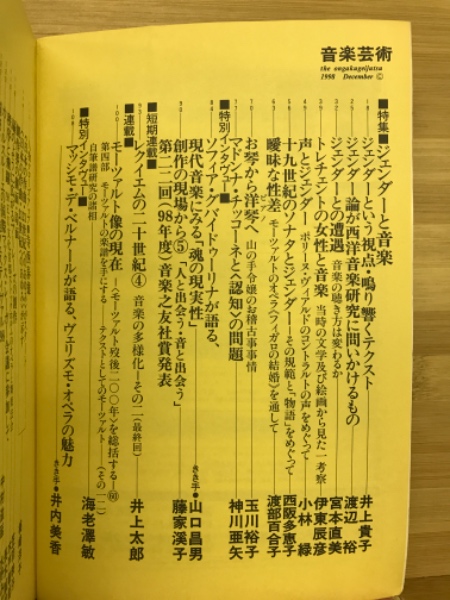 音楽芸術
the ongakugeijutsu
1998 December ©
■特集■ジェンダーと音楽
ジェンダーという視点・鳴り響くテクスト 井上貴子
ジェンダー論が西洋音楽研究に問いかけるもの 渡辺 裕
ジェンダーとの遭遇 音楽の聴き方は変わるか 宮本直美
トレチェントの女性と音楽 当時の文学及び絵画から見た一考察 伊東辰彦
声とジェンダー ポリーヌ・ヴィアルドのコントラルトの声をめぐって 小林 緑
十九世紀のソナタとジェンダー—その規範と“物語”をめぐって 西阪多恵子
曖昧な性差 モーツァルトのオペラ《フィガロの結婚》を通して 渡部百合子
お琴から洋琴へ 山の手令嬢のお稽古事事情 玉川裕子
マドンナ・チッコーネと〈認知〉の問題 神川亜矢
■特別インタヴュー■
ソフィア・グバイドゥーリナが語る、
現代音楽にみる「魂の現実性」 きき手●山口昌男
創作の現場から⑤「人と出会う・音と出会う」 藤家溪子
第二二回(98年度)音楽之友社賞発表
■短期連載■
レクイエムの二十世紀④ 音楽の多様化—その二(最終回) 井上太郎
■連載■
モーツァルト像の現在 —〈モーツァルト歿後二〇〇年〉を総括する—㊿
第四部 モーツァルトの楽譜を手にする— テクストとしてのモーツァルト
自筆譜研究の諸相 〈その一二〉 海老澤敏
■特別インタヴュー■
マッシモ・デ・ベルナールが語る、ヴェリズモ・オペラの魅力
きき手●井内美香